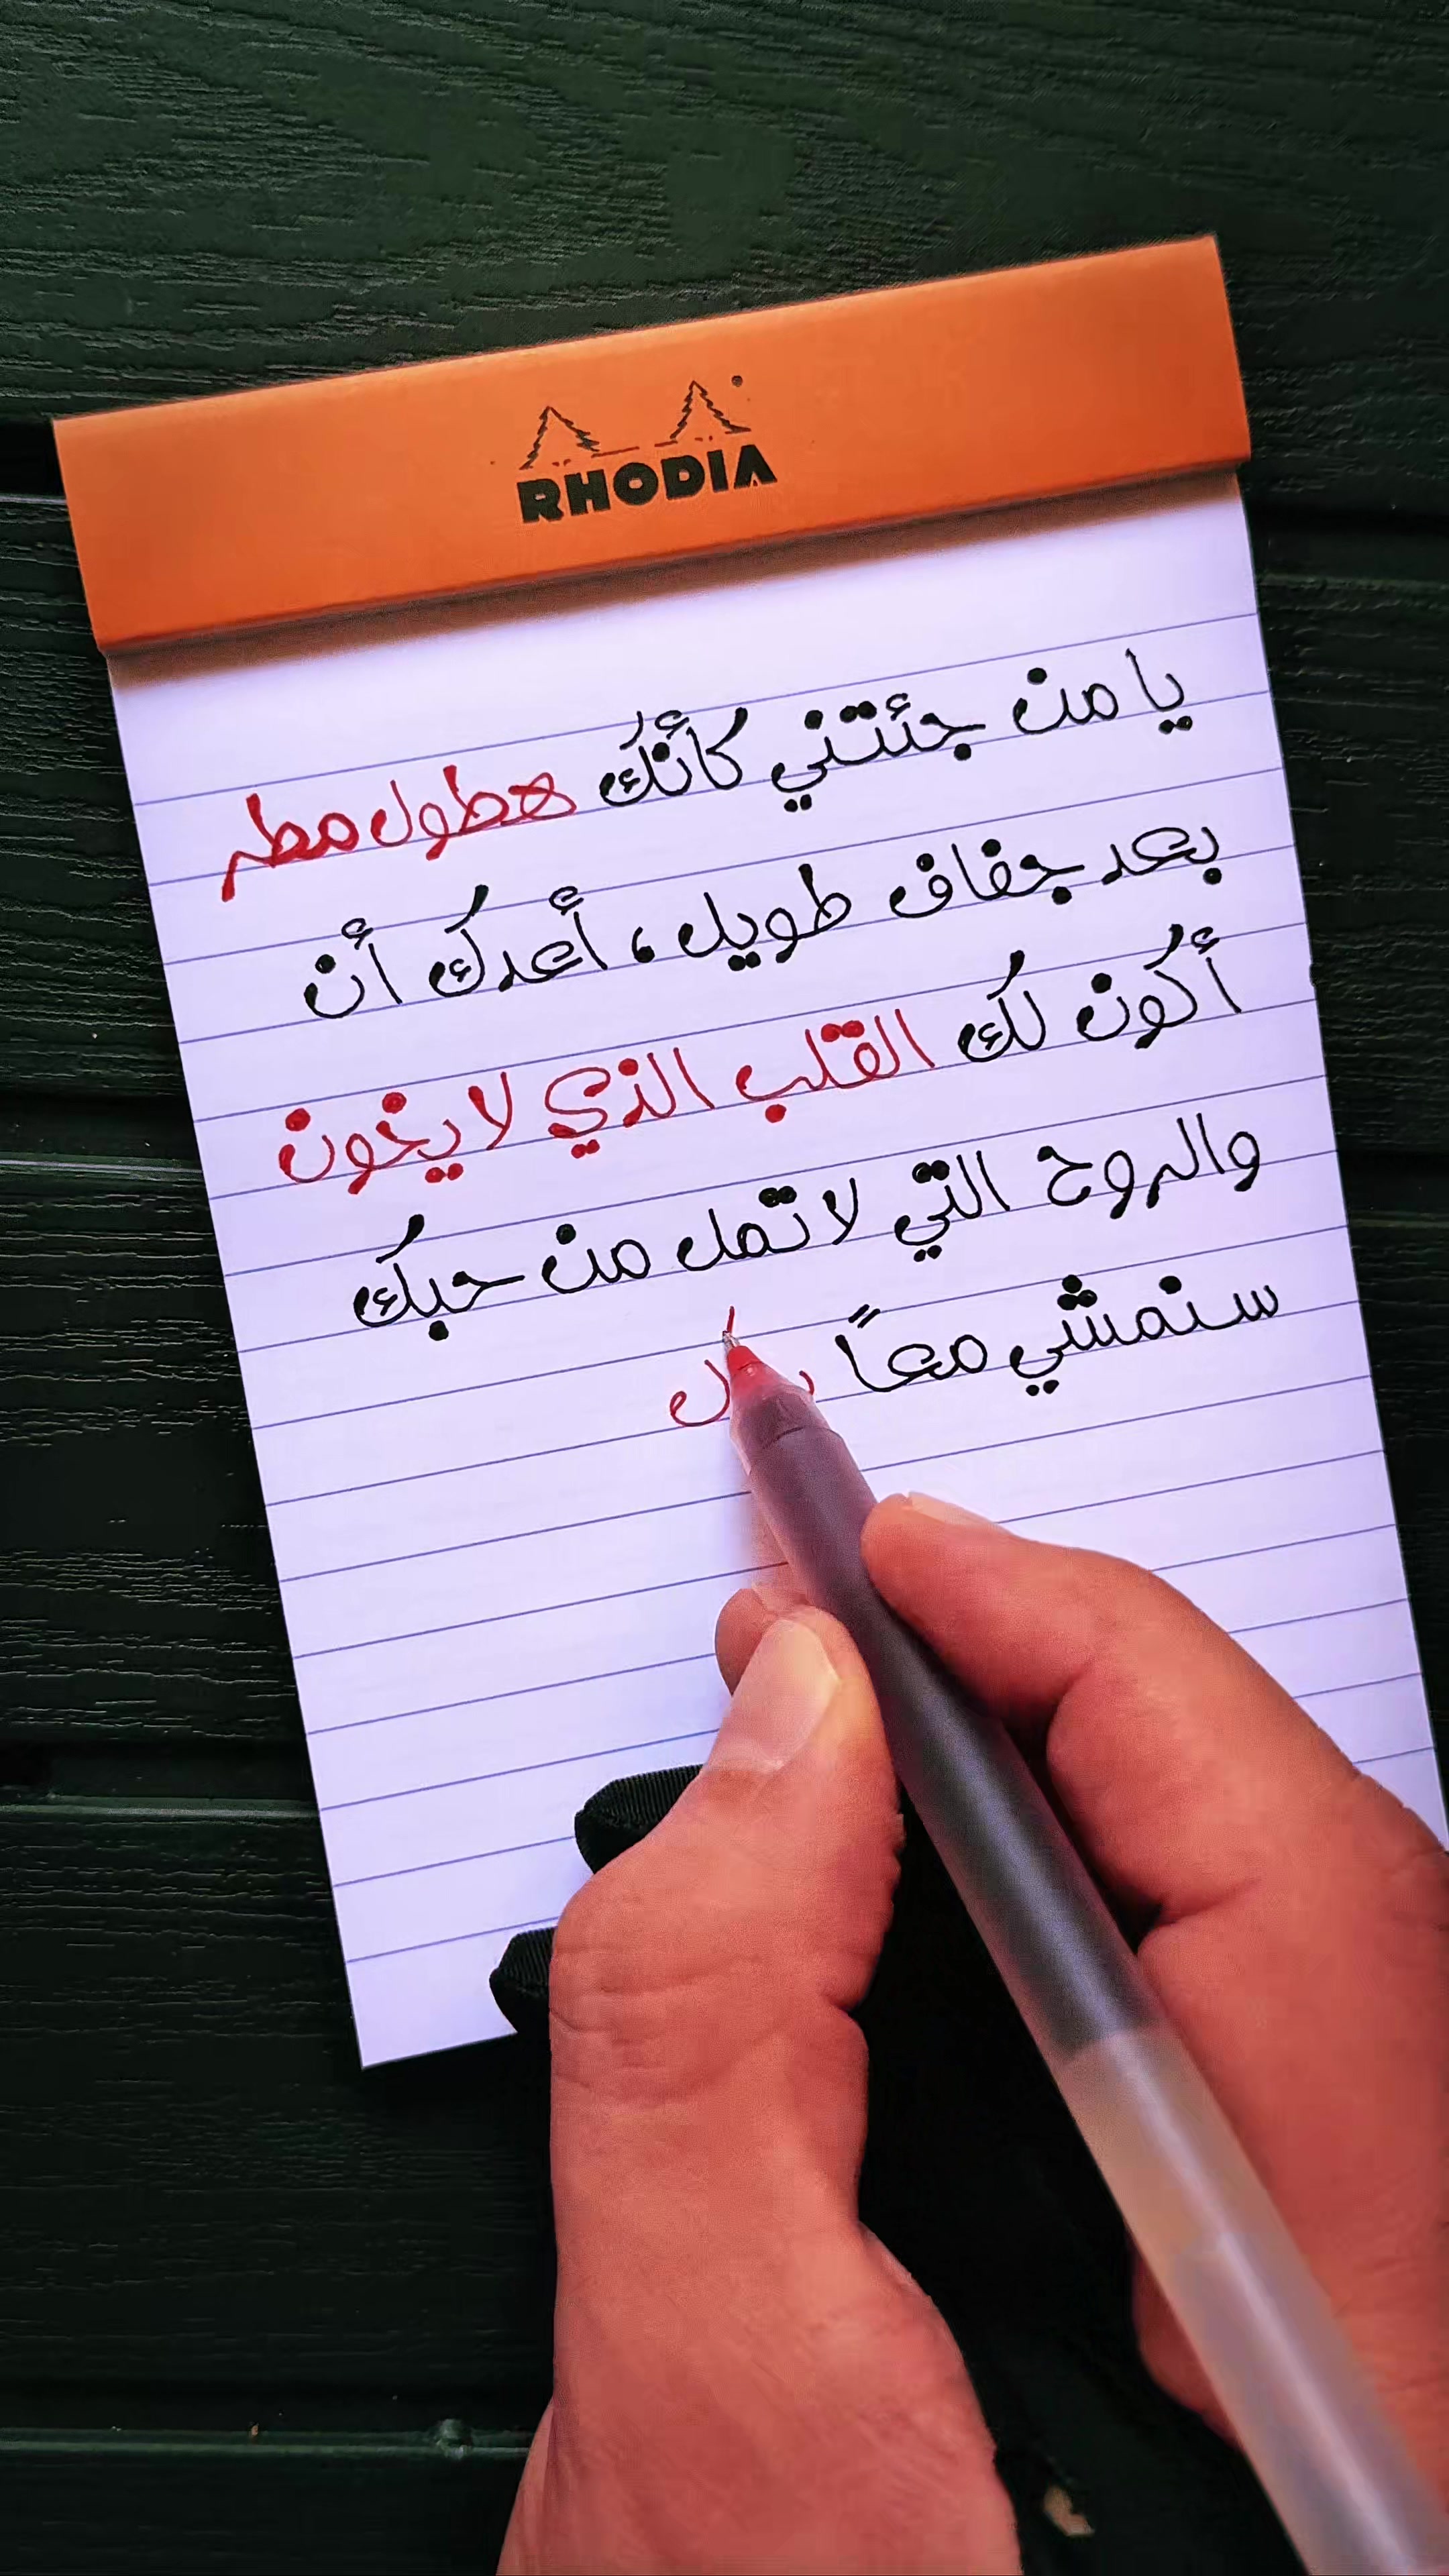 RHODIA
يا من جئتني كأنك هطول مطر
بعد جفاف طويل، أعدك أن
أكون لك القلب الذي لا يخون
والروح التي لا تمل من حبك
سنمشي معاً